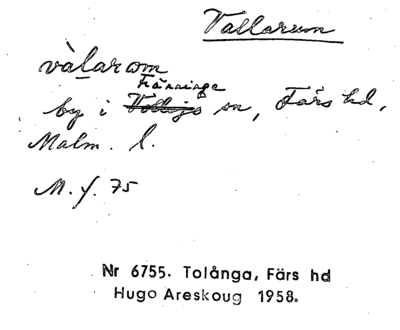 Vallarum
vàlarom
Tränninge
by i Vollsjö sn, Färs hd,
Malm. l.
M. f. 75
Nr 6755. Tolånga, Färs hd
Hugo Areskoug 1958.